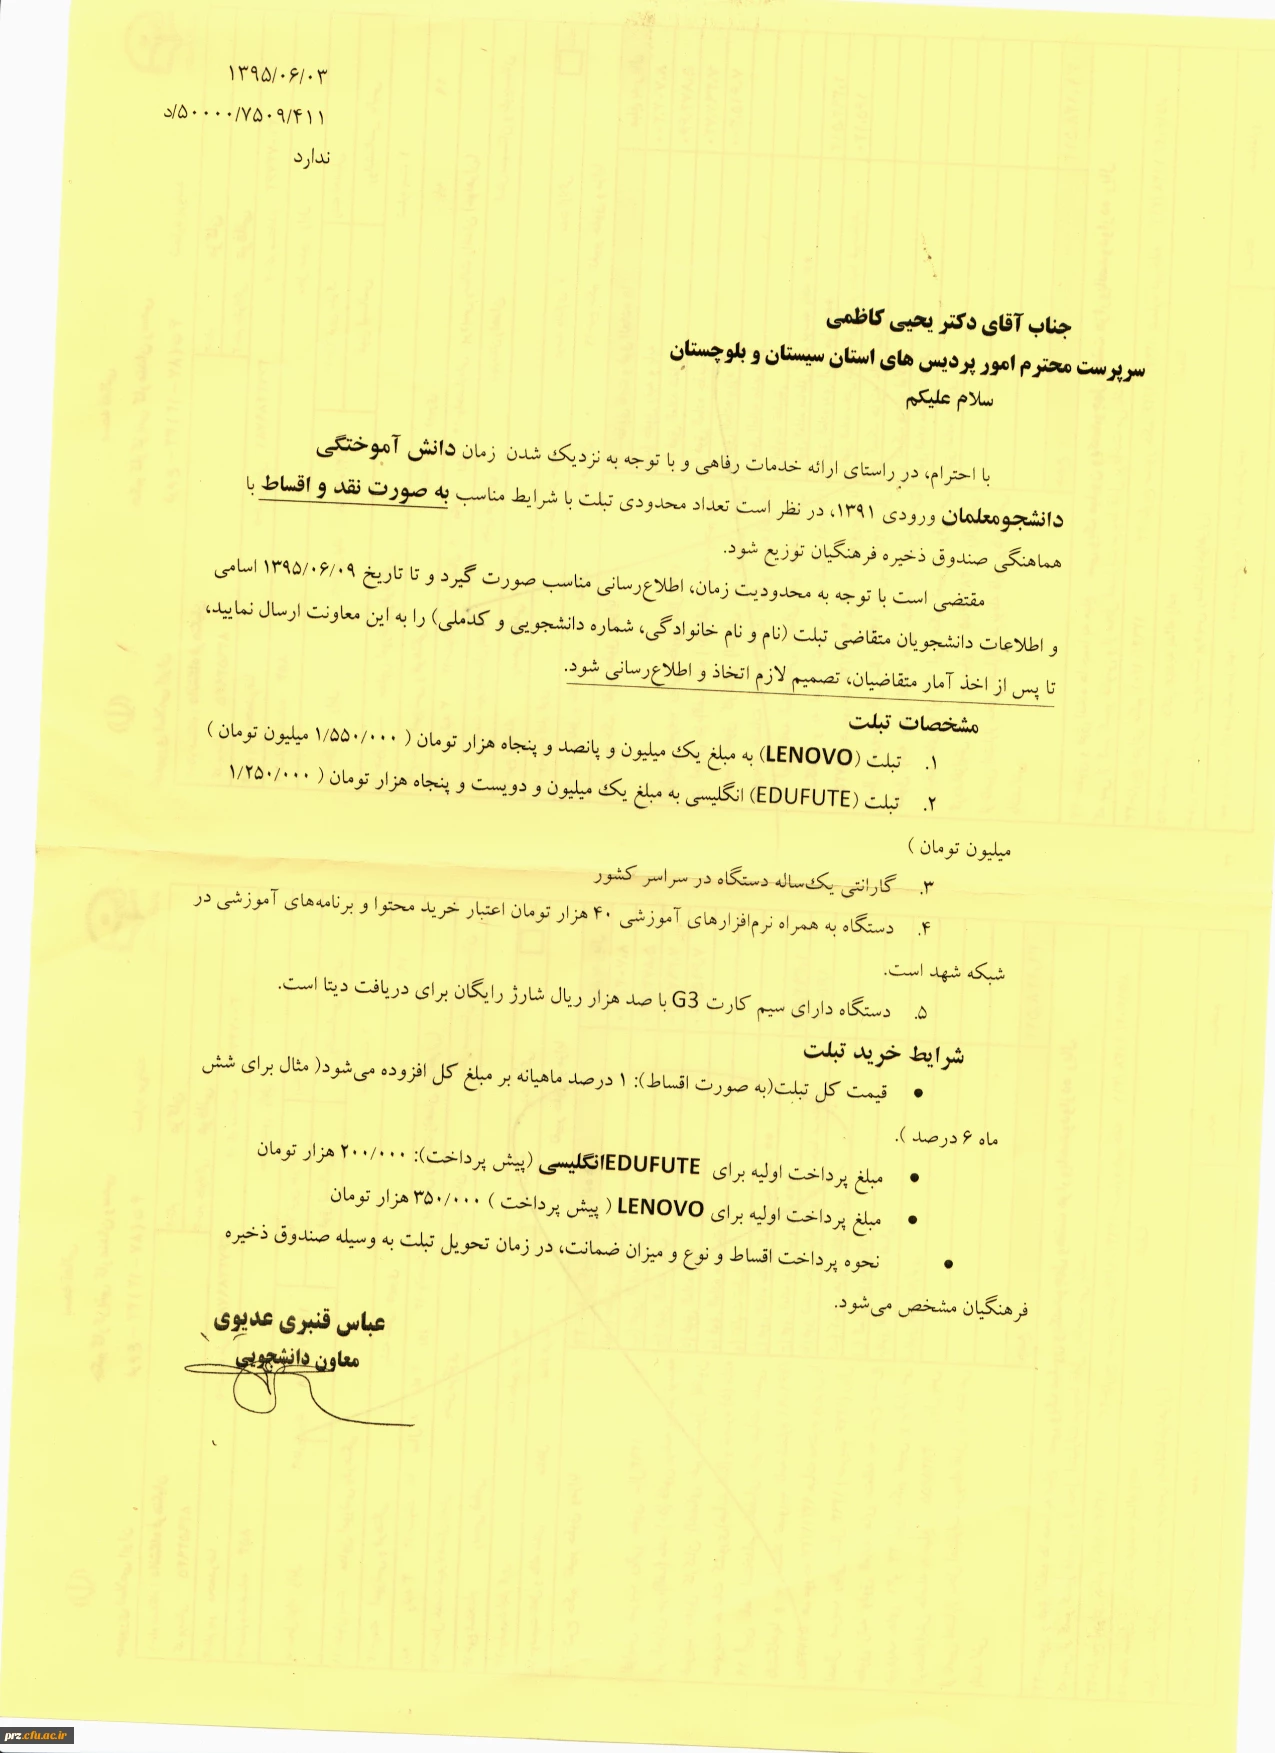 ۱۳۹۵/۰۶/۰۳
۵۰۰۰۰/۷۵۰۹/۴۱۱/د
ندارد
جناب آقای دکتر یحیی کاظمی
سرپرست محترم امور پردیس های استان سیستان و بلوچستان
سلام علیکم
با احترام، در راستای ارائه خدمات رفاهی و با توجه به نزدیک شدن زمان دانش آموختگی
دانشجومعلمان ورودی ۱۳۹۱، در نظر است تعداد محدودی تبلت با شرایط مناسب به صورت نقد و اقساط با
هماهنگی صندوق ذخیره فرهنگیان توزیع شود.
مقتضی است با توجه به محدودیت زمان، اطلاع‌رسانی مناسب صورت گیرد و تا تاریخ ۱۳۹۵/۰۶/۰۹ اسامی
و اطلاعات دانشجویان متقاضی تبلت (نام و نام خانوادگی، شماره دانشجویی و کدملی) را به این معاونت ارسال نمایید،
تا پس از اخذ آمار متقاضیان، تصمیم لازم اتخاذ و اطلاع‌رسانی شود.
مشخصات تبلت
۱. تبلت (LENOVO) به مبلغ یک میلیون و پانصد و پنجاه هزار تومان ( ۱/۵۵۰/۰۰۰ میلیون تومان )
۲. تبلت (EDUFUTE) انگلیسی به مبلغ یک میلیون و دویست و پنجاه هزار تومان ( ۱/۲۵۰/۰۰۰
میلیون تومان )
۳. گارانتی یک‌ساله دستگاه در سراسر کشور
۴. دستگاه به همراه نرم‌افزارهای آموزشی ۴۰ هزار تومان اعتبار خرید محتوا و برنامه‌های آموزشی در
شبکه شهد است.
۵. دستگاه دارای سیم کارت G3 با صد هزار ریال شارژ رایگان برای دریافت دیتا است.
شرایط خرید تبلت
• قیمت کل تبلت(به صورت اقساط): ۱ درصد ماهیانه بر مبلغ کل افزوده می‌شود( مثال برای شش
ماه ۶ درصد ).
• مبلغ پرداخت اولیه برای EDUFUTEانگلیسی (پیش پرداخت): ۲۰۰/۰۰۰ هزار تومان
• مبلغ پرداخت اولیه برای LENOVO ( پیش پرداخت ) ۳۵۰/۰۰۰ هزار تومان
• نحوه پرداخت اقساط و نوع و میزان ضمانت، در زمان تحویل تبلت به وسیله صندوق ذخیره
فرهنگیان مشخص می‌شود.
عباس قنبری عدیوی
معاون دانشجویی
prz.cfu.ac.ir